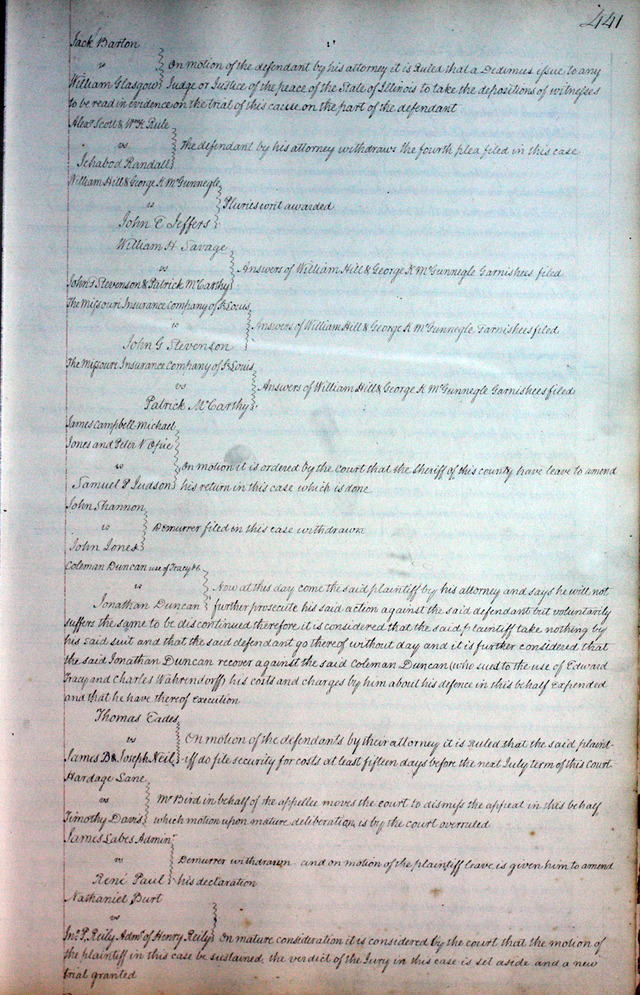 441
Jack Barton
vs
On motion of the defendant by his attorney it is Ruled that a Dedimus issue to any
William Glasgow Judge or Justice of the peace of the State of Illinois to take the depositions of witnesses
to be read in evidence on the trial of this cause on the part of the defendant
Alexr Scott & Wm K Rule
vs
The defendant by his attorney withdraws the fourth plea filed in this case
Ichabod Randall
William Hill & George K McGunnegle
vs
Pluries writ awarded
John E Jeffers
William H Savage
vs
Answers of William Hill & George K McGunnegle Garnishees filed
John G Stevenson & Patrick McCarthy
The Missouri Insurance Company of St Louis
vs
Answers of William Hill & George K McGunnegle Garnishees filed
John G Stevenson
The Missouri Insurance Company of St Louis
vs
Answers of William Hill & George K McGunnegle Garnishees filed
Patrick McCarthy
James Campbell Michael
Jones and Peter N
vs
On motion it is ordered by the Court that the Sheriff of this county have leave to amend
Samuel P Judson his return in this case which is done
John Shannon
vs
Demurrer filed in this case withdrawn
John Jones
Coleman Duncan use of Tracy &
vs
Now at this day come the said plaintiff by his attorney and says he will not
Jonathan Duncan further prosecute his said action against the said defendant but voluntarily
suffers the same to be discontinued therefore it is considered that the said plaintiff take nothing by
his said suit and that the said defendant go thereof without day and it is further considered that
the said Jonathan Duncan recover against the said Coleman Duncan (who sued to the use of Edward
Tracy and Charles Wahrendorff) his costs and charges by him about his defence in this behalf expended
and that he have thereof execution
Thomas Eades
vs
On motion of the defendants by their attorney it is Ruled that the said plaint-
James D & Joseph Neil iff do file security for costs at least fifteen days before the next July term of this Court
Hardage Lane
vs
Mr Bird in behalf of the appellee moves the court to dismiss the appeal in this behalf
Timothy Davis which motion upon mature deliberation is by the court overruled
James Labes Admin
vs
Demurrer withdrawn and on motion of the plaintiff leave is given him to amend
René Paul his declaration
Nathaniel Burt
vs
Jno P Reily Admr of Henry Reily On mature consideration it is considered by the court that the motion of
the plaintiff in this case be sustained, the verdict of the Jury in this case is set aside and a new
trial granted